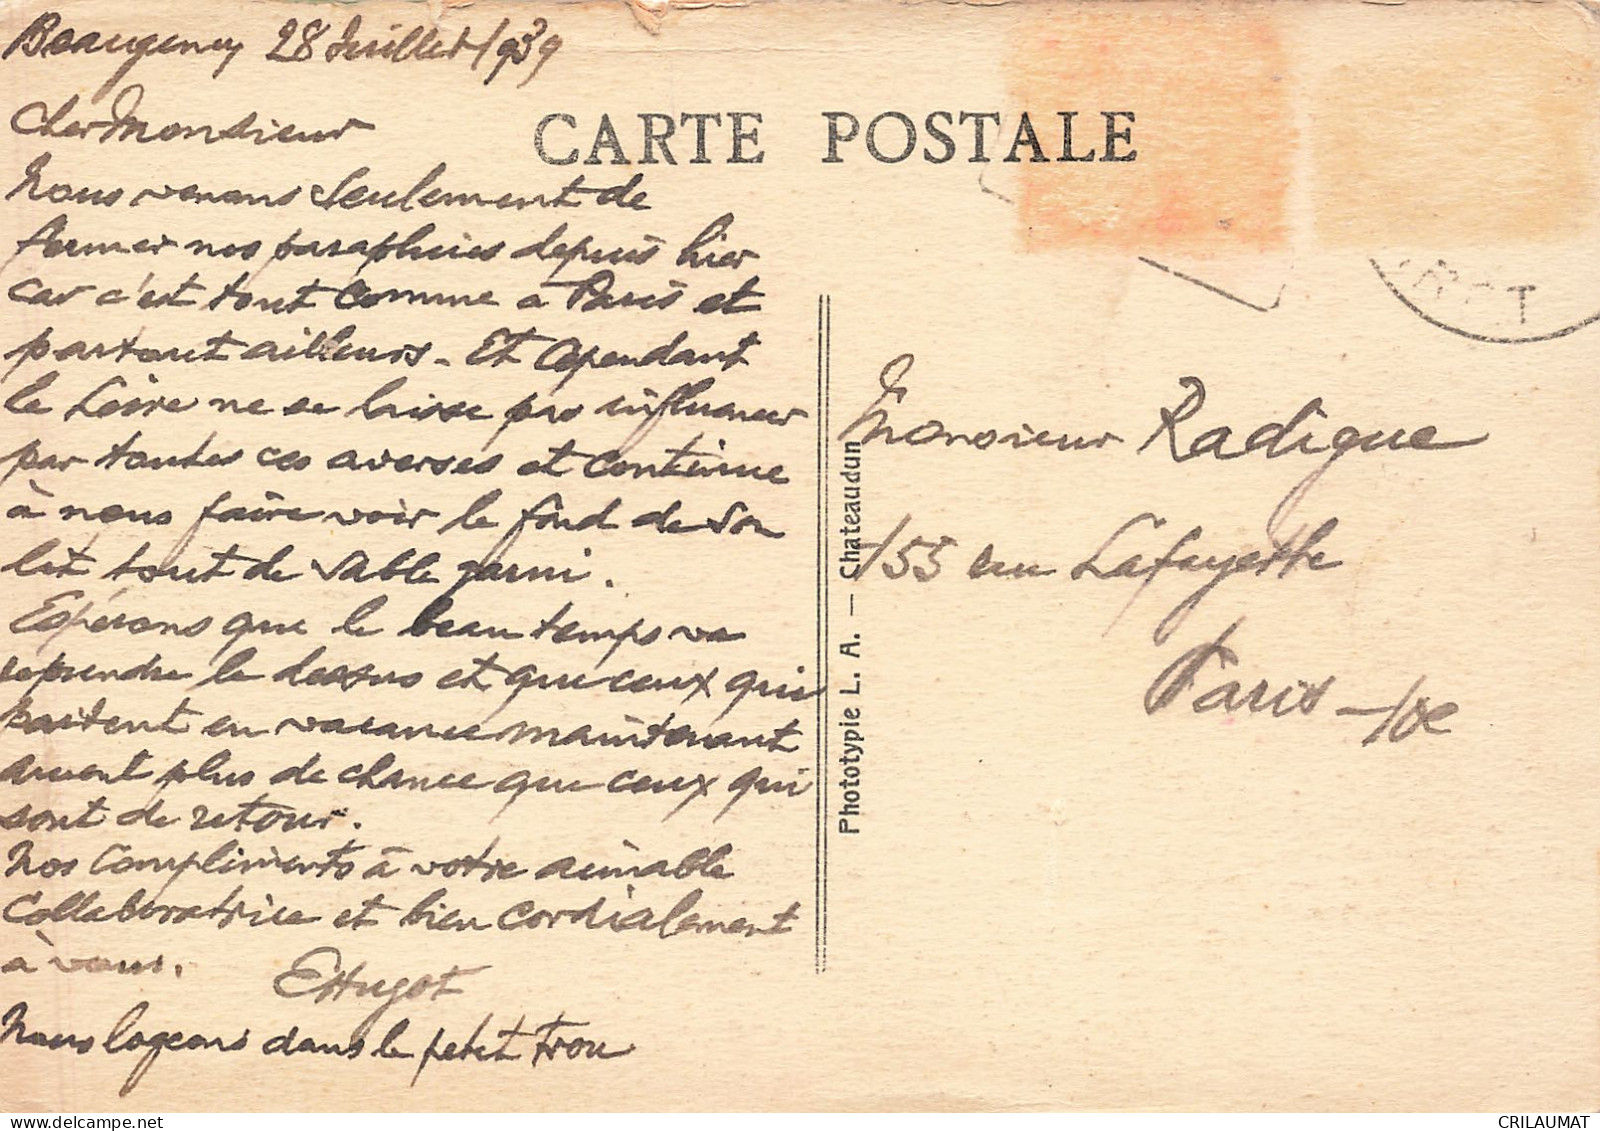 Beaugency 28 Juillet 1939
Cher Monsieur
Nous venons seulement de
fermer nos parapluies depuis hier
car c'est tout comme à Paris et
partout ailleurs. Et cependant
la Loire ne se laisse pas influencer
par toutes ces averses et continue
à nous faire voir le fond de son
lit tout de sable garni.
Espérons que le beau temps va
reprendre le dessus et que ceux qui
partent en vacances maintenant
auront plus de chance que ceux qui
sont de retour.
Nos compliments à votre aimable
Collaboratrice et bien cordialement
à vous.
EHugot
Nous logeons dans le petit trou
CARTE POSTALE
Phototypie L. A. — Chateaudun
Monsieur Radigue
155 rue Lafayette
Paris - Xe
CRILAUMAT